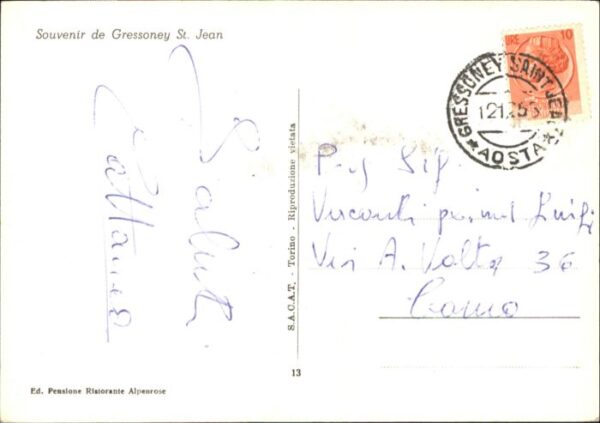 Souvenir de Gressoney St. Jean
LIRE 10
GRESSONEY SAINT JEAN
★ AOSTA ★
Saluti
Cattaneo
S.A.C.A.T. - Torino - Riproduzione vietata
Sig.
Visconti Luigi
Via A. Volta 36
Como
13
Ed. Pensione Ristorante Alpenrose